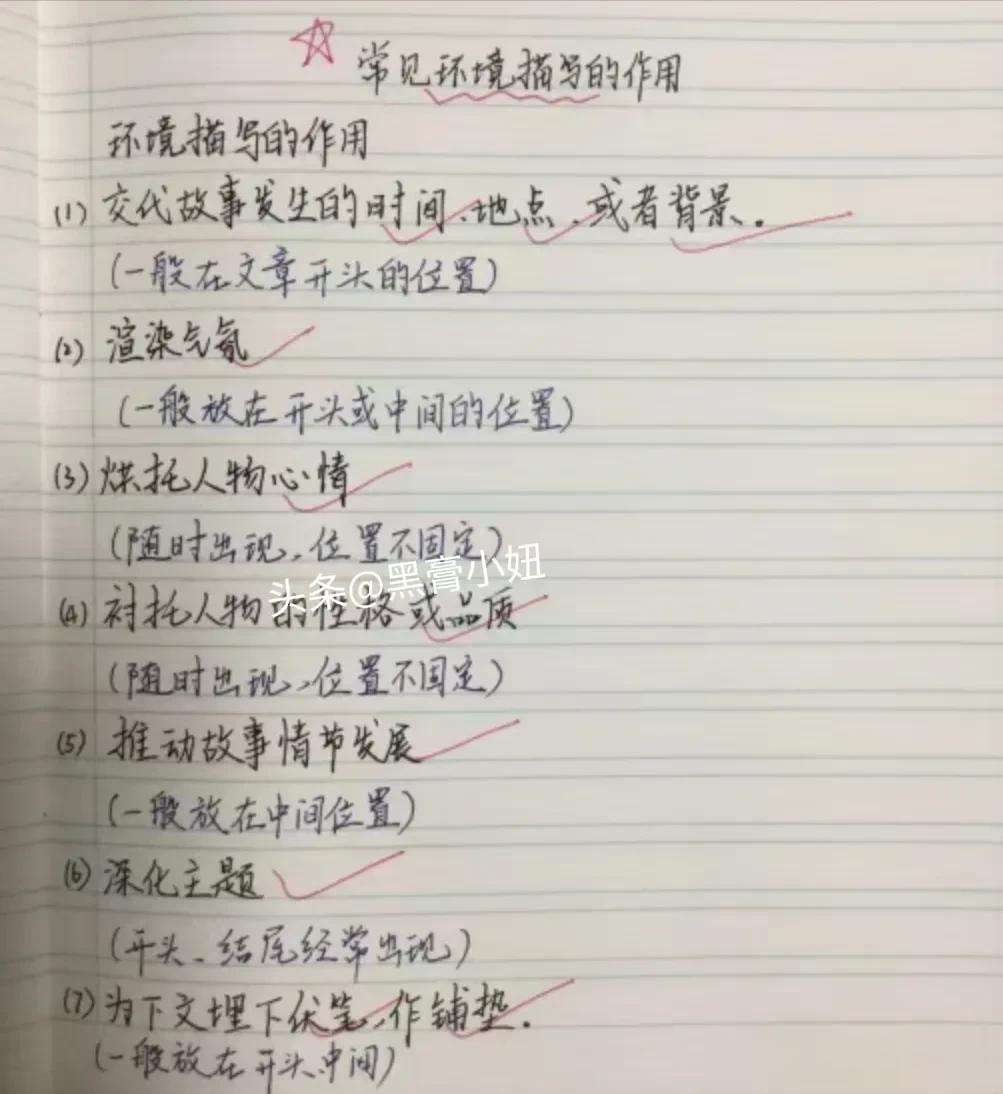 常见环境描写的作用
环境描写的作用
(1) 交代故事发生的时间、地点、或者背景.
(一般在文章开头的位置)
(2) 渲染气氛
(一般放在开头或中间的位置)
(3) 烘托人物心情
(随时出现、位置不固定)
头条@黑膏小妞
(4) 衬托人物的性格或品质
(随时出现、位置不固定)
(5) 推动故事情节发展
(一般放在中间位置)
(6) 深化主题
(开头、结尾经常出现)
(7) 为下文埋下伏笔、作铺垫.
(一般放在开头.中间)